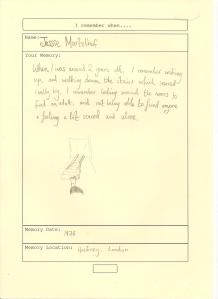 I remember when....
Name: Jesse
Your Memory:
When I was around 2 years old, I remember waking
up, and walking down the stairs which seemed
really big. I remember looking around the rooms to
find an adult, and not being able to find anyone
& feeling a bit scared and alone.
Memory Date: 1978
Memory Location: Hackney, London